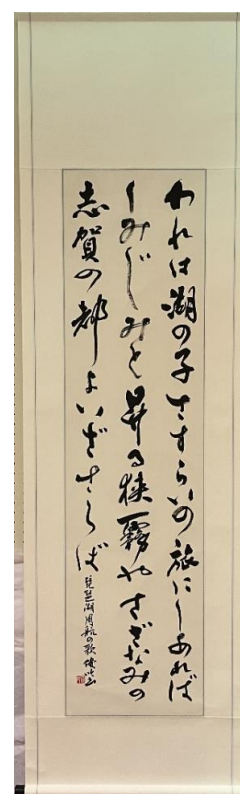 われは湖の子さすらいの旅にしあれば
しみじみと昇る狭霧やさざなみの
志賀の都よいざさらば
琵琶湖周航の歌